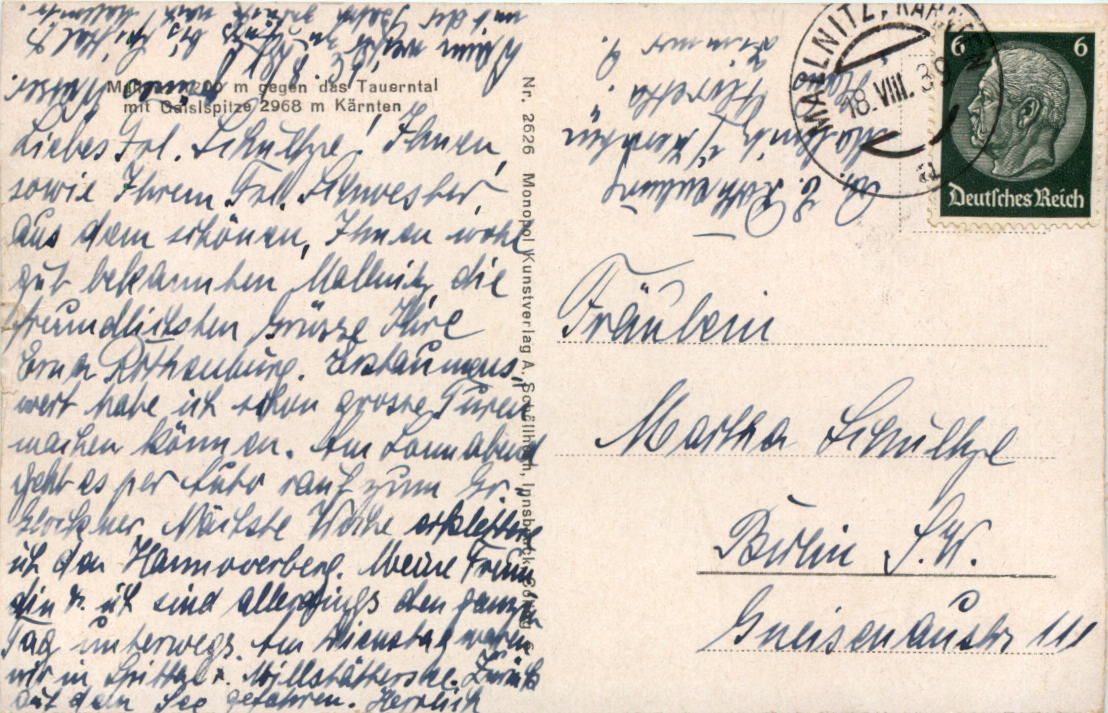 Mallnitz, 18.8.39
Liebes Frl. Schultze! Ihnen,
sowie Ihrem Frl. Schwester,
aus dem schönen, Ihnen wohl
gut bekannten, Mallnitz die
freundlichsten Grüsse Ihre
Erna Rothenburg. Erstaunens-
wert habe ich schon grosse Turen
machen können. Am Sonnabend
geht es per Auto rauf zum Gr.
Glockner. Nächste Woche erklettere
ich den Hannoverberg. Meine Freun-
din u. ich sind allerdings den ganzen
Tag unterwegs. Am Dienstag waren
wir in Spittal u. Millstätthersee. Zurück
auf dem See gefahren. Herrlich
m gegen das Tauerntal
mit Gaislspitze 2968 m Kärnten
Nr. 2626 Monopol Kunstverlag A. Schöllhorn, Innsbruck
Abs. E. Rothenburg
Mallnitz / Kärnten
Zimmer 9
MALLNITZ, KÄRNTEN
18.VIII.39
a
6 6
Deutsches Reich
Fräulein
Martha Schultze
Berlin S.W.
Gneisenaustr 111